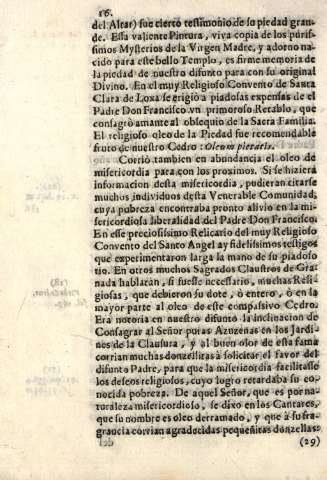 16.
del Altar) fue cierto testimonio de su piedad gran-
de. Esta valiente Pintura, viva copia de los purifsi-
mos Mysterios de la Virgen Madre, y adorno na-
cido para este bello Templo, es firme memoria de
la piedad de nuestro difunto para con su original
Divino. En el muy Religioso Convento de Santa
Clara de Loxa se erigiò a piadosas expensas de el
Padre Don Francisco vn primoroso Retablo, que
consagrò amante al obsequio de la Sacra Familia.
El religioso oleo de la Piedad fue recomendable
fruto de nuestro Cedro: Oleum pietatis.
Corriò tambien en abundancia el oleo de
misericordia para con los proximos. Si se hiziera
informacion desta misericordia, pudieran citarse
muchos individuos desta Venerable Comunidad,
cuya pobreza encontraba pronto alivio en la mi-
sericordiosa liberalidad del Padre Don Francisco.
En esse preciosissimo Relicario del muy Religioso
Convento del Santo Angel ay fidelissimos testigos
que experimentaron larga la mano de su piadoso
tio. En otros muchos Sagrados Claustros de Gra-
nada hablaràn, si fuesse necessario, muchas Reli-
giosas, que debieron su dote, ò entero, ò en la
mayor parte al oleo de este compassivo Cedro
Era notoria en nuestro difunto la inclinacion de
Consagrar al Señor puras Azuzenas en los Jardi-
nes de la Clausura, y al buen olor de esta fama
corrian muchas donzellitas à solicitar el favor del
difunto Padre, para que la misericordia facilitasse
los deseos religiosos, cuyo logro retardaba su co-
nocida pobreza. De aquel Señor, que es por na-
turaleza misericordioso, se dixo en los Cantares,
que su nombre es oleo derramado, y que à su fra-
grancia corrian agradecidas pequeñitas donzellas:
(29)